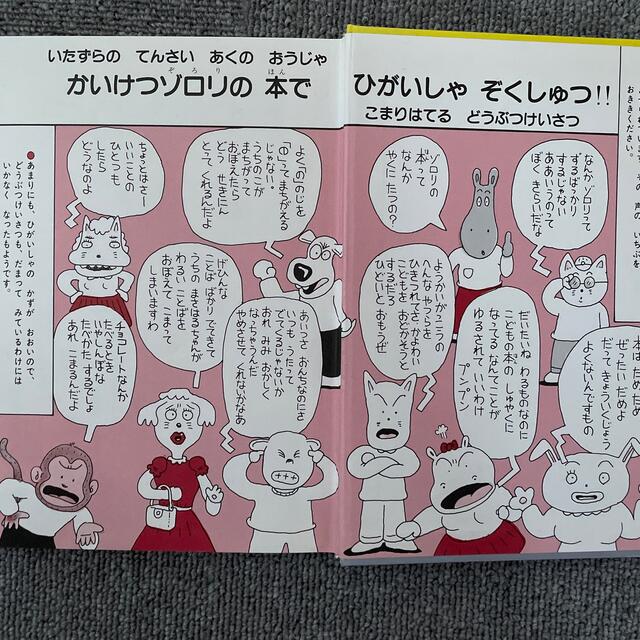 いたずらの てんさい あくの おうじゃ
かいけつゾロリの 本で
ぞろり
ほん
ひがいしゃ ぞくしゅつ!!
こまりはてる どうぶつけいさつ
おききください。
●あまりにも、ひがいしゃの かずが おおいので、
どうぶつけいさつも、だまって みているわけには
いかなく なったもようです。
ちょっとはさー
いいことの
ひとつも
したら
どうなのよ
よく「の」のじを
「の」ってまちがえる
じゃない。
うちのこが
まちがって
おぼえたら
どう せきにん
とって くれるんだよ
げひんな
ことば ばかり でてきて
うちの まさはるちゃんが
わるい ことばを
おぼえて こまって
しまいますわ
チョコレートなんか
たべるとき
いやしんぼな
たべかた するでしょ
あれ こまるんだよ
あいつさ おんちなのにさ
いつも うたって
でてくるじゃないか
おれ みみ おかしく
なっちゃうんだ
やめさせて くれないかなあ
ゾロリの
本って
なんか
やくに たつの?
なんか ゾロリって
ずるばっかり
するじゃない
ああいうのって
ぼく きらいだな
ようかいがっこうの
へんな やつらを
ひきつれてさ かよわい
こどもを おどかそうと
するだろ
ひどいと おもうぜ
だいたいね わるものなのに
こどもの 本の しゅやくに
なってる なんてことが
ゆるされて いいわけ
プンプン
ぜったい だめよ
だって きょういくじょう
よくないんですもの